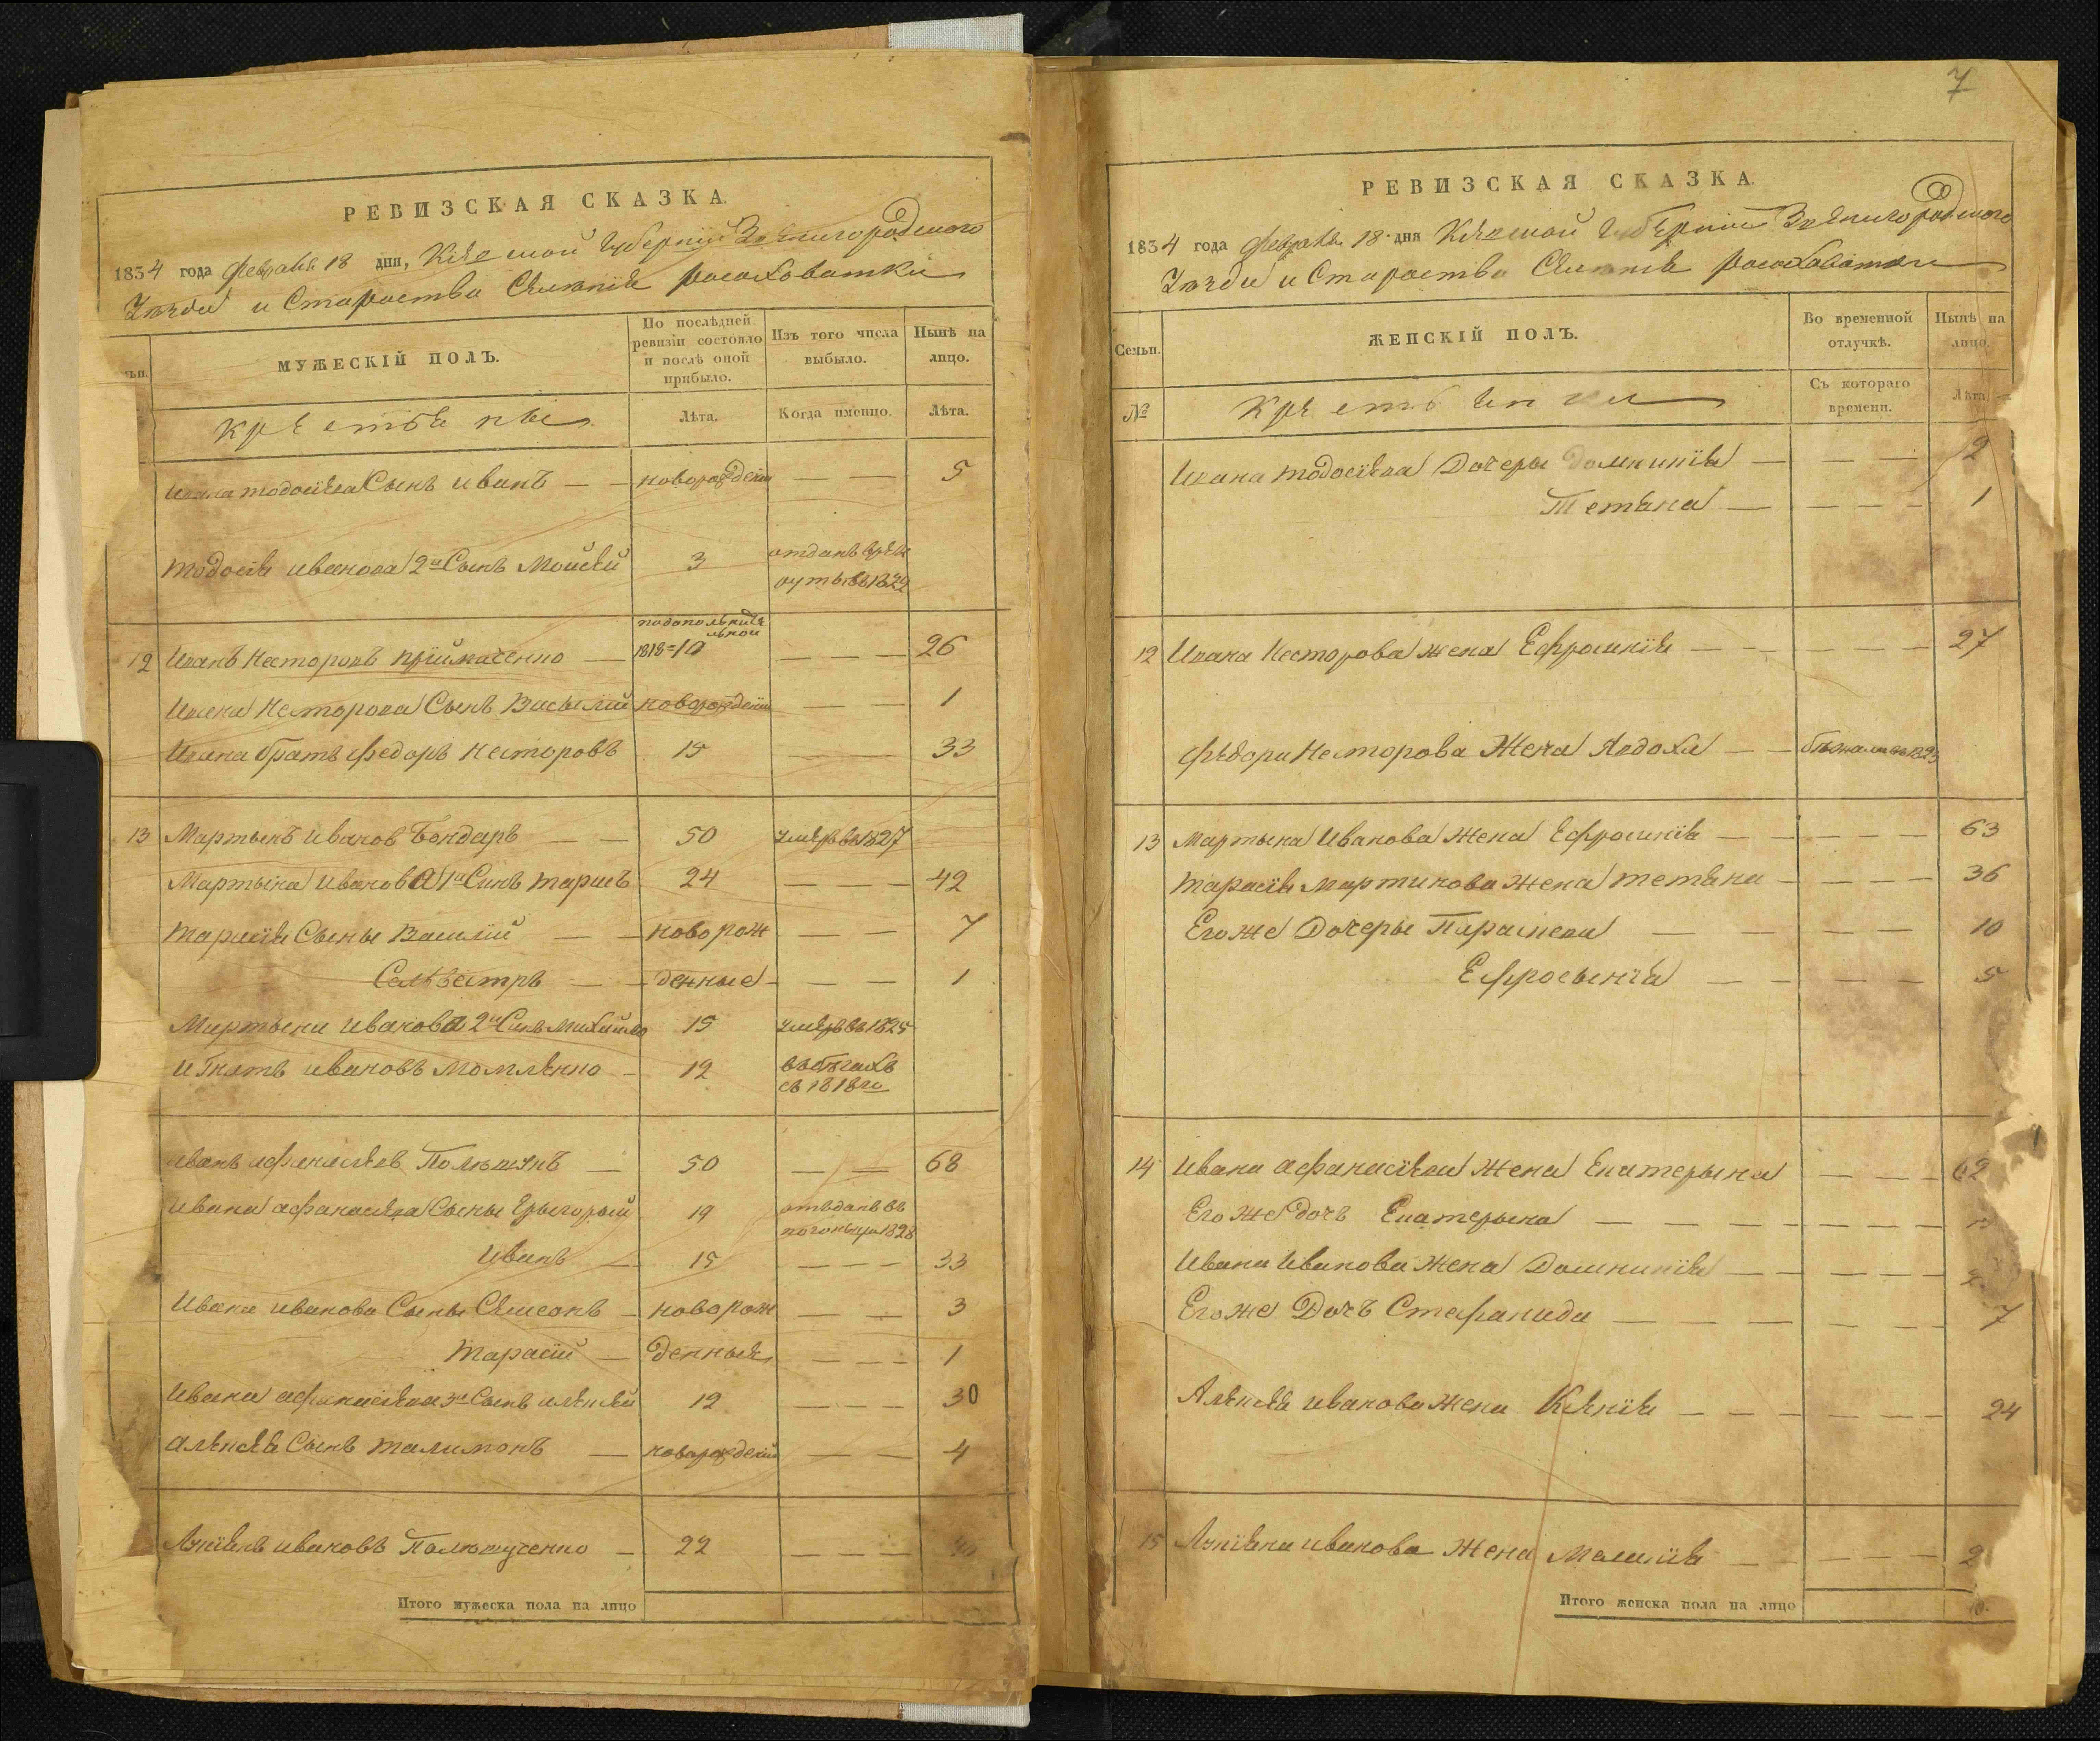 РЕВИЗСКАЯ СКАЗКА.
1834 года февраля 18 дня, Киевской Губернии Звенигородского
Уезда и Староства Селения росоховатки
МУЖЕСКІЙ ПОЛЪ.
По послѣдней ревизіи состояло и послѣ оной прибыло.
Изъ того числа выбыло.
Нынѣ на лицо.
крестьяне
Лѣта.
Когда именно.
Лѣта.
Ивана тодосіева Сынъ иванъ — — новорожденній — — 5
тодосія иванова 2й Сынъ Мойсей 3 отданъ в
1829
12 Иванъ Несторовъ — 1818=10 — — — 26
Ивана Несторова Сынъ Василий новорожденій — — 1
Ивана братъ федоръ несторовъ 15 — — 33
13 Мартынъ иванов Бондаръ — — 50 умеръ въ 1827
Мартына иванова 1й Синъ тарасъ 24 — — — 42
тарасія Сыны Василій — — новорож — — 7
Селвестръ — — денные — — — 1
Мартына иванова 2й Синъ Михайло 15 умеръ въ 1825
игнатъ ивановъ — 12 въ бегахъ
съ 1818го
иванъ афанасиев — 50 — — 68
ивана афанасіева Сыны Григорый 19 отъданъ въ
1828
иванъ — 15 — — — 33
ивана иванова Сыны Семеонъ — новорож — — 3
тарасій — денные — — — 1
ивана афанасіева 3й Сынъ алексей 12 — — — 30
алексея Сынъ талимонъ — новорожденій — — 4
ивановъ — 22 — — —
Итого мужеска пола на лицо
7
РЕВИЗСКАЯ СКАЗКА.
1834 года февраля 18 дня Киевской Губернии Звенигородского
Уезда и Староства Селения росоховатки
Семьи.
ЖЕНСКІЙ ПОЛЪ.
Во временной отлучкѣ.
Нынѣ на лицо.
№
крестянки
Съ котораго времени.
Лѣта.
Ивана тодосіева Дочеры Домникія — — — — 2
Тетяна — — — — 1
12 Ивана Несторова жена Ефросинія — — — — — 27
федора Несторова Жена Явдоха — — бежала въ 1823
13 Мартына Иванова жена Ефросинія — — — — — 63
тарасія Мартинова жена тетяна — — — — 36
Егоже Дочеры Параскева — — — — — 10
Ефросынія — — — — — 5
14 Ивана афанасіева жена Екатерына — — — 62
Его же дочъ Екатерына — — — — —
Ивана Иванова жена Домникія — — — — —
Егоже Дочъ Стефанида — — — — — — 7
Алексея иванова жена Ксенія — — — — — — 24
15 иванова жена — — — — —
Итого женска пола на лицо